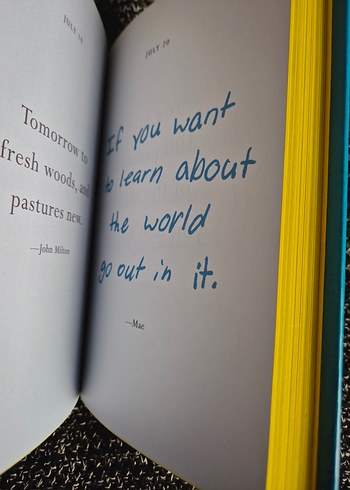 JULY
Tomorrow to
fresh woods, and
pastures new.
—John Milton
JULY 30
If you want
to learn about
the world
go out in it.
—Mae